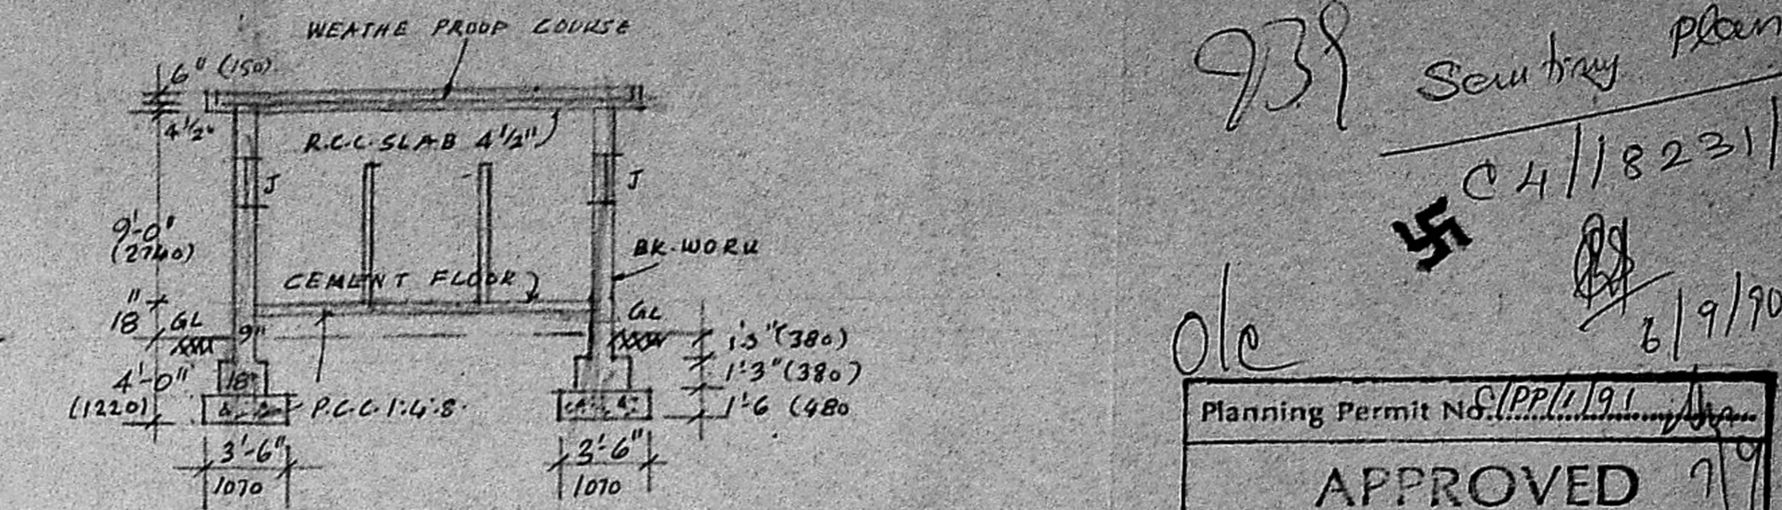 WEATHE PROOF COURSE
6" (150)
4 1/2"
R.C.C. SLAB 4 1/2"
J
J
9'-0"
(2740)
BK. WORK
CEMENT FLOOR
18"
GL
9"
GL
1'3" (380)
4'-0"
18"
1'3" (380)
(1220)
P.C.C. 1:4:8.
1'-6 (480
3'-6"
3'-6"
1070
1070
939
Plan
C4/18231/
6/9/90
O/C
Planning Permit No. C/PP/1/91
APPROVED